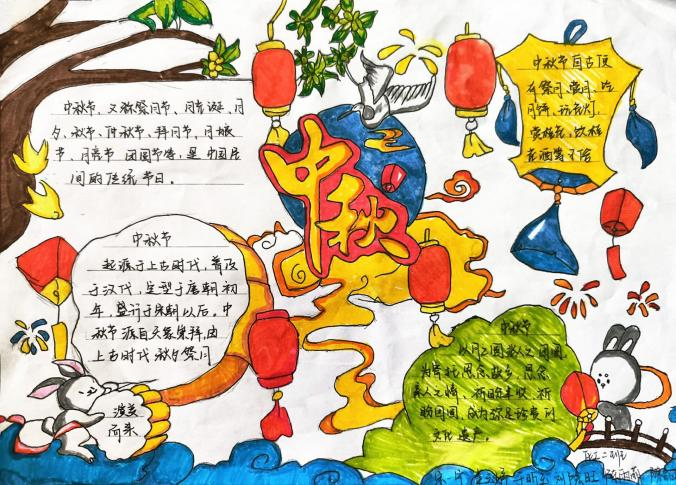 中秋节，又称祭月节、月光诞、月
夕、秋节、仲秋节、拜月节、月娘
节、月亮节、团圆节等，是中国民
间的传统节日。
中秋
中秋节自古便
有祭月、赏月、吃
月饼、玩花灯、
赏桂花、饮桂
花酒等习俗
中秋节
起源于上古时代，普及
于汉代，定型于唐朝初
年，盛行于宋朝以后。中
秋节源自天象崇拜，由
上古时代秋夕祭月
演变
而来
中秋节
以月之圆兆人之团圆，
为寄托思念故乡，思念
亲人之情，祈盼丰收、祈
盼团圆，成为
文化遗产。
二班